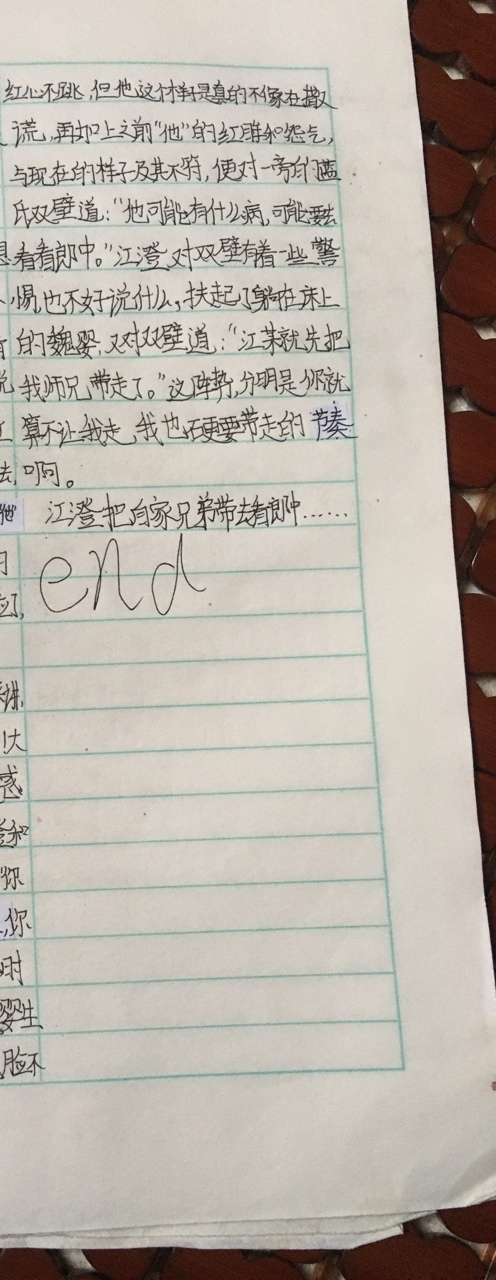 红心不跳,但他这个样子是真的不像在撒
谎,再加上之前“他”的红眸和怨气,
与现在的样子及其不符,便对一旁的蓝
氏双壁道:“他可能有什么病,可能要去
看看郎中。”江澄对双壁有着一些警
惕也不好说什么,扶起了躺在床上
的魏婴,又对双壁道:“江某就先把
我师兄带走了。”这阵势,分明是你就
算不让我走,我也硬要带走的节奏
啊。
江澄把自家兄弟带去看郎中……
end
去
他
习
大
感
你
,你
时
婴生
脸不